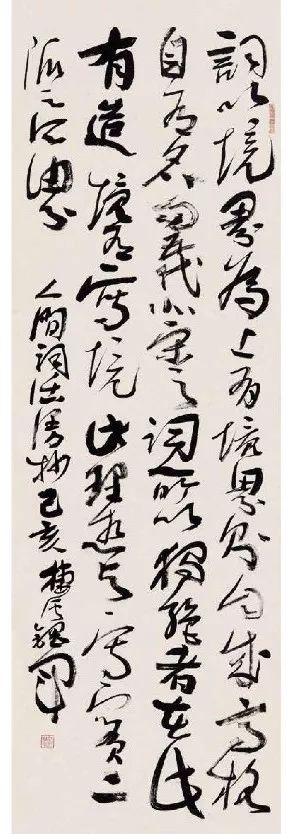 詞以境界為上有境界則自成高格
自有名句五代北宋之詞所以獨絕者在此
有造境有寫境此理想与寫實二
派之
人間詞話漫抄己亥梅